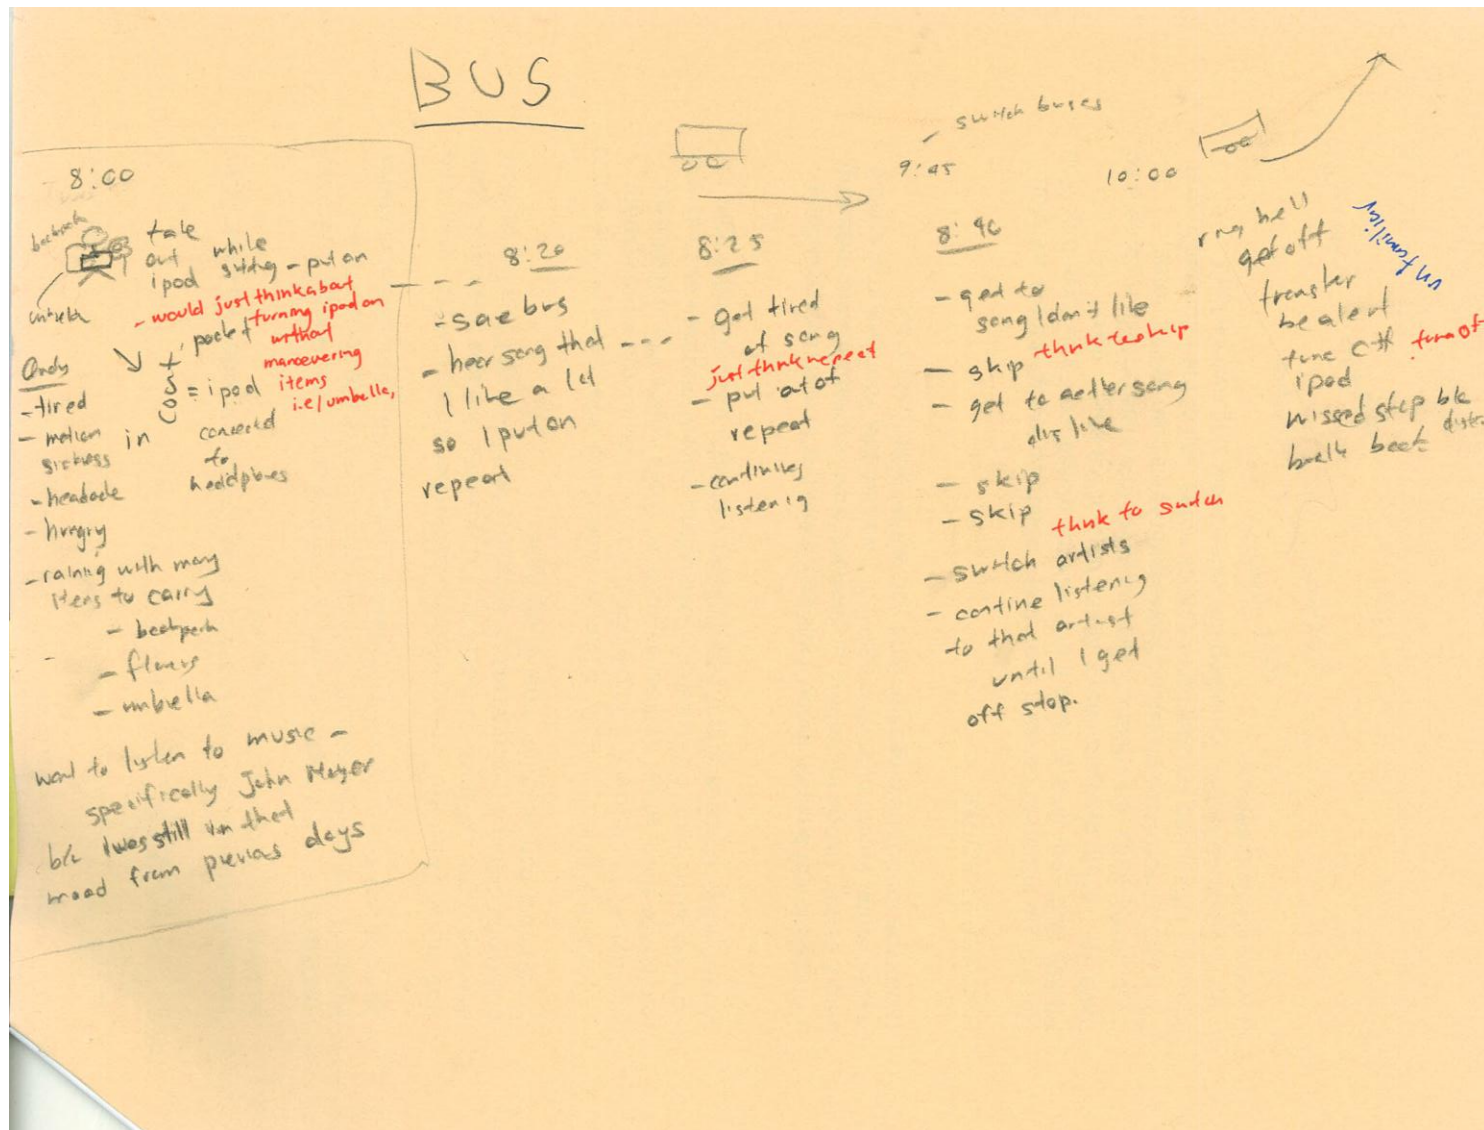 BUS
8:00
backpack
umbrella
take
out while
ipod sitting - put on
- would just think about
turning ipod on
without
manoevering
items
i.e/umbella,
pocket
= ipod
conected
to
headphones
in
Andy
- tired
- motion
sickness
- headache
- hungry
- raining with many
items to carry
- backpack
- flowers
- umbrella
want to listen to music -
specifically John Mayer
b/c I was still in that
mood from previous days
8:20
- same bus
- hear song that
I like a lot
so I put on
repeat
8:25
- get tired
of song
just think repeat
- put out of
repeat
- continues
listening
- switch buses
9:45
8:40
- get to
song I don't like
- skip think to skip
- get to another song
dislike
- skip
- skip
think to switch
- switch artists
- contine listening
to that artist
until I get
off stop.
10:00
ring bell
get off
unfamiliar
transfer
be alert
turn off turn off
ipod
missed stop b/c
walk back